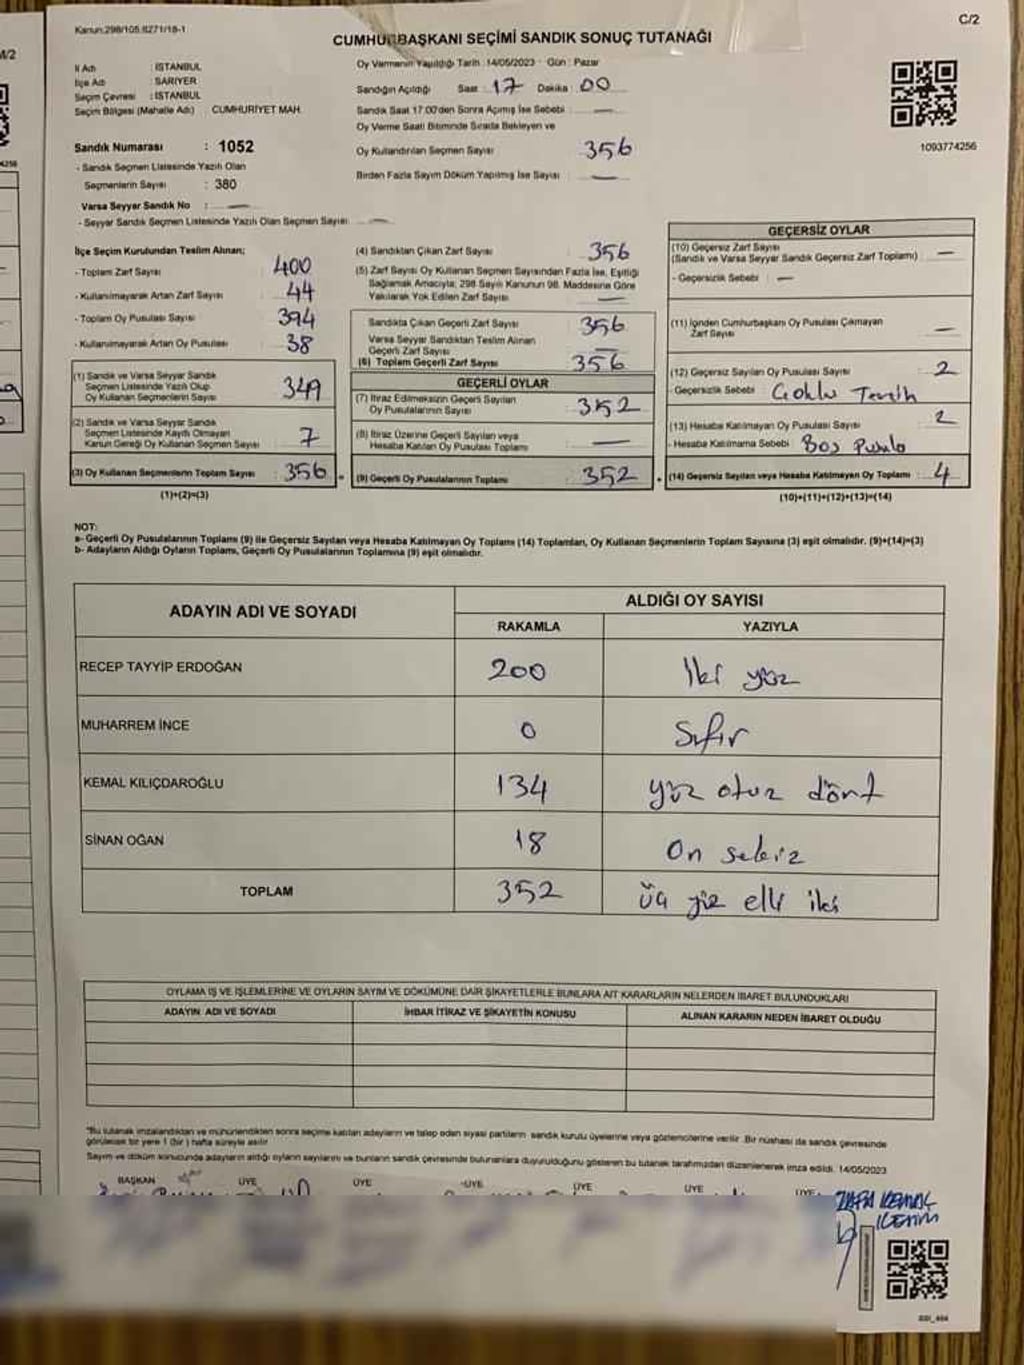 Kanun:298/105,6271/18-1
C/2
CUMHURBAŞKANI SEÇİMİ SANDIK SONUÇ TUTANAĞI
İl Adı : İSTANBUL
İlçe Adı : SARIYER
Seçim Çevresi : İSTANBUL
Seçim Bölgesi (Mahalle Adı) CUMHURİYET MAH.
Sandık Numarası : 1052
- Sandık Seçmen Listesinde Yazılı Olan
Seçmenlerin Sayısı : 380
Varsa Seyyar Sandık No : —
- Seyyar Sandık Seçmen Listesinde Yazılı Olan Seçmen Sayısı —
Oy Vermenin Yapıldığı Tarih : 14/05/2023 - Gün : Pazar
Sandığın Açıldığı Saat : 17 Dakika : 00
Sandık Saat 17:00'den Sonra Açımış İse Sebebi : —
Oy Verme Saati Bitiminde Sırada Bekleyen ve
Oy Kullandırılan Seçmen Sayısı 356
Birden Fazla Sayım Döküm Yapılmış İse Sayısı —
1093774256
İlçe Seçim Kurulundan Teslim Alınan;
- Toplam Zarf Sayısı 400
- Kullanılmayarak Artan Zarf Sayısı 44
- Toplam Oy Pusulası Sayısı 394
- Kullanılmayarak Artan Oy Pusulası 38
(1) Sandık ve Varsa Seyyar Sandık
Seçmen Listesinde Yazılı Olup
Oy Kullanan Seçmenlerin Sayısı 349
(2) Sandık ve Varsa Seyyar Sandık
Seçmen Listesinde Kayıtlı Olmayan
Kanun Gereği Oy Kullanan Seçmen Sayısı 7
(3) Oy Kullanan Seçmenlerin Toplam Sayısı 356
(1)+(2)=(3)
(4) Sandıktan Çıkan Zarf Sayısı 356
(5) Zarf Sayısı Oy Kullanan Seçmen Sayısından Fazla İse, Eşitliği
Sağlamak Amacıyla; 298 Sayılı Kanunun 98. Maddesine Göre
Yakılarak Yok Edilen Zarf Sayısı —
Sandıkta Çıkan Geçerli Zarf Sayısı 356
Varsa Seyyar Sandıktan Teslim Alınan
Geçerli Zarf Sayısı
(6) Toplam Geçerli Zarf Sayısı 356
GEÇERLİ OYLAR
(7) İtiraz Edilmeksizin Geçerli Sayılan
Oy Pusulalarının Sayısı 352
(8) İtiraz Üzerine Geçerli Sayılan veya
Hesaba Katılan Oy Pusulaları Toplamı —
(9) Geçerli Oy Pusulalarının Toplamı 352
GEÇERSİZ OYLAR
(10) Geçersiz Zarf Sayısı
(Sandık ve Varsa Seyyar Sandık Geçersiz Zarf Toplamı) —
- Geçersizlik Sebebi : —
(11) İçinden Cumhurbaşkanı Oy Pusulası Çıkmayan
Zarf Sayısı —
(12) Geçersiz Sayılan Oy Pusulası Sayısı 2
- Geçersizlik Sebebi Çoklu Tercih
(13) Hesaba Katılmayan Oy Pusulası Sayısı 2
- Hesaba Katılmama Sebebi Boş Pusula
(14) Geçersiz Sayılan veya Hesaba Katılmayan Oy Toplamı 4
(10)+(11)+(12)+(13)=(14)
NOT:
a- Geçerli Oy Pusulalarının Toplamı (9) ile Geçersiz Sayılan veya Hesaba Katılmayan Oy Toplamı (14) Toplamları, Oy Kullanan Seçmenlerin Toplam Sayısına (3) eşit olmalıdır. (9)+(14)=(3)
b- Adayların Aldığı Oyların Toplamı, Geçerli Oy Pusulalarının Toplamına (9) eşit olmalıdır.
ADAYIN ADI VE SOYADI ALDIĞI OY SAYISI
RAKAMLA YAZIYLA
RECEP TAYYİP ERDOĞAN 200 İki yüz
MUHARREM İNCE 0 Sıfır
KEMAL KILIÇDAROĞLU 134 yüz otuz dört
SİNAN OĞAN 18 On sekiz
TOPLAM 352 üç yüz elli iki
OYLAMA İŞ VE İŞLEMLERİNE VE OYLARIN SAYIM VE DÖKÜMÜNE DAİR ŞİKAYETLERLE BUNLARA AİT KARARLARIN NELERDEN İBARET BULUNDUKLARI
ADAYIN ADI VE SOYADI İHBAR İTİRAZ VE ŞİKAYETİN KONUSU ALINAN KARARIN NEDEN İBARET OLDUĞU
*Bu tutanak imzalandıktan ve mühürlendikten sonra seçime katılan adayların ve talep eden siyasi partilerin sandık kurulu üyelerine veya gözlemcilerine verilir. Bir nüshası da sandık çevresinde
görülecek bir yere 1 (bir) hafta süreyle asılır.
Sayım ve döküm sonucunda adayların aldığı oyların sayılarını ve bunların sandık çevresinde bulunanlara duyurulduğunu gösteren bu tutanak tarafımızdan düzenlenerek imza edildi. 14/05/2023
BAŞKAN ÜYE ÜYE ÜYE ÜYE ÜYE ÜYE